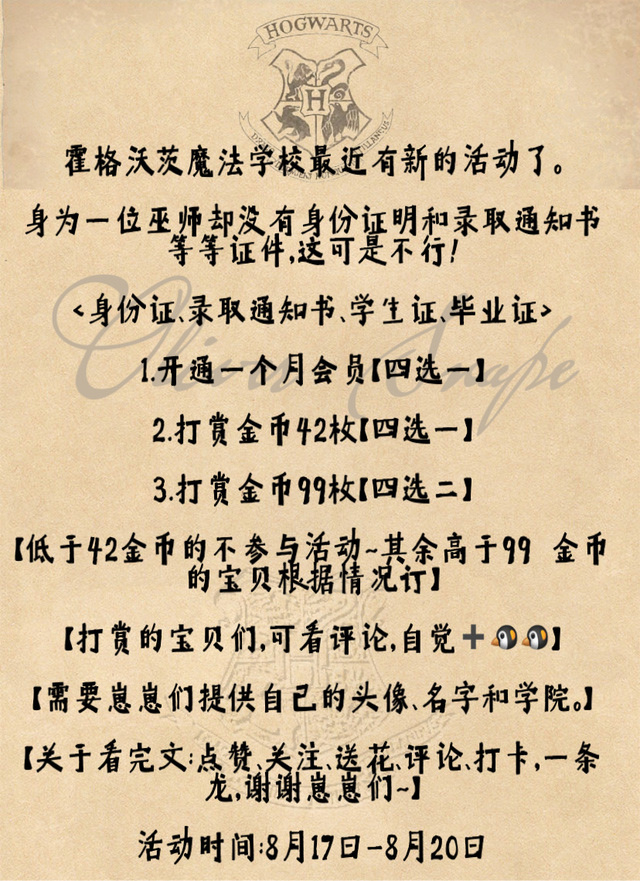 HOGWARTS
霍格沃茨魔法学校最近有新的活动了。
身为一位巫师却没有身份证明和录取通知书
等等证件,这可是不行!
<身份证、录取通知书、学生证、毕业证>
1.开通一个月会员【四选一】
2.打赏金币42枚【四选一】
3.打赏金币99枚【四选二】
【低于42金币的不参与活动~其余高于99 金币
的宝贝根据情况订】
【打赏的宝贝们,可看评论,自觉➕🐧🐧】
【需要崽崽们提供自己的头像、名字和学院。】
【关于看完文:点赞、关注、送花、评论、打卡,一条
龙,谢谢崽崽们~】
活动时间:8月17日-8月20日